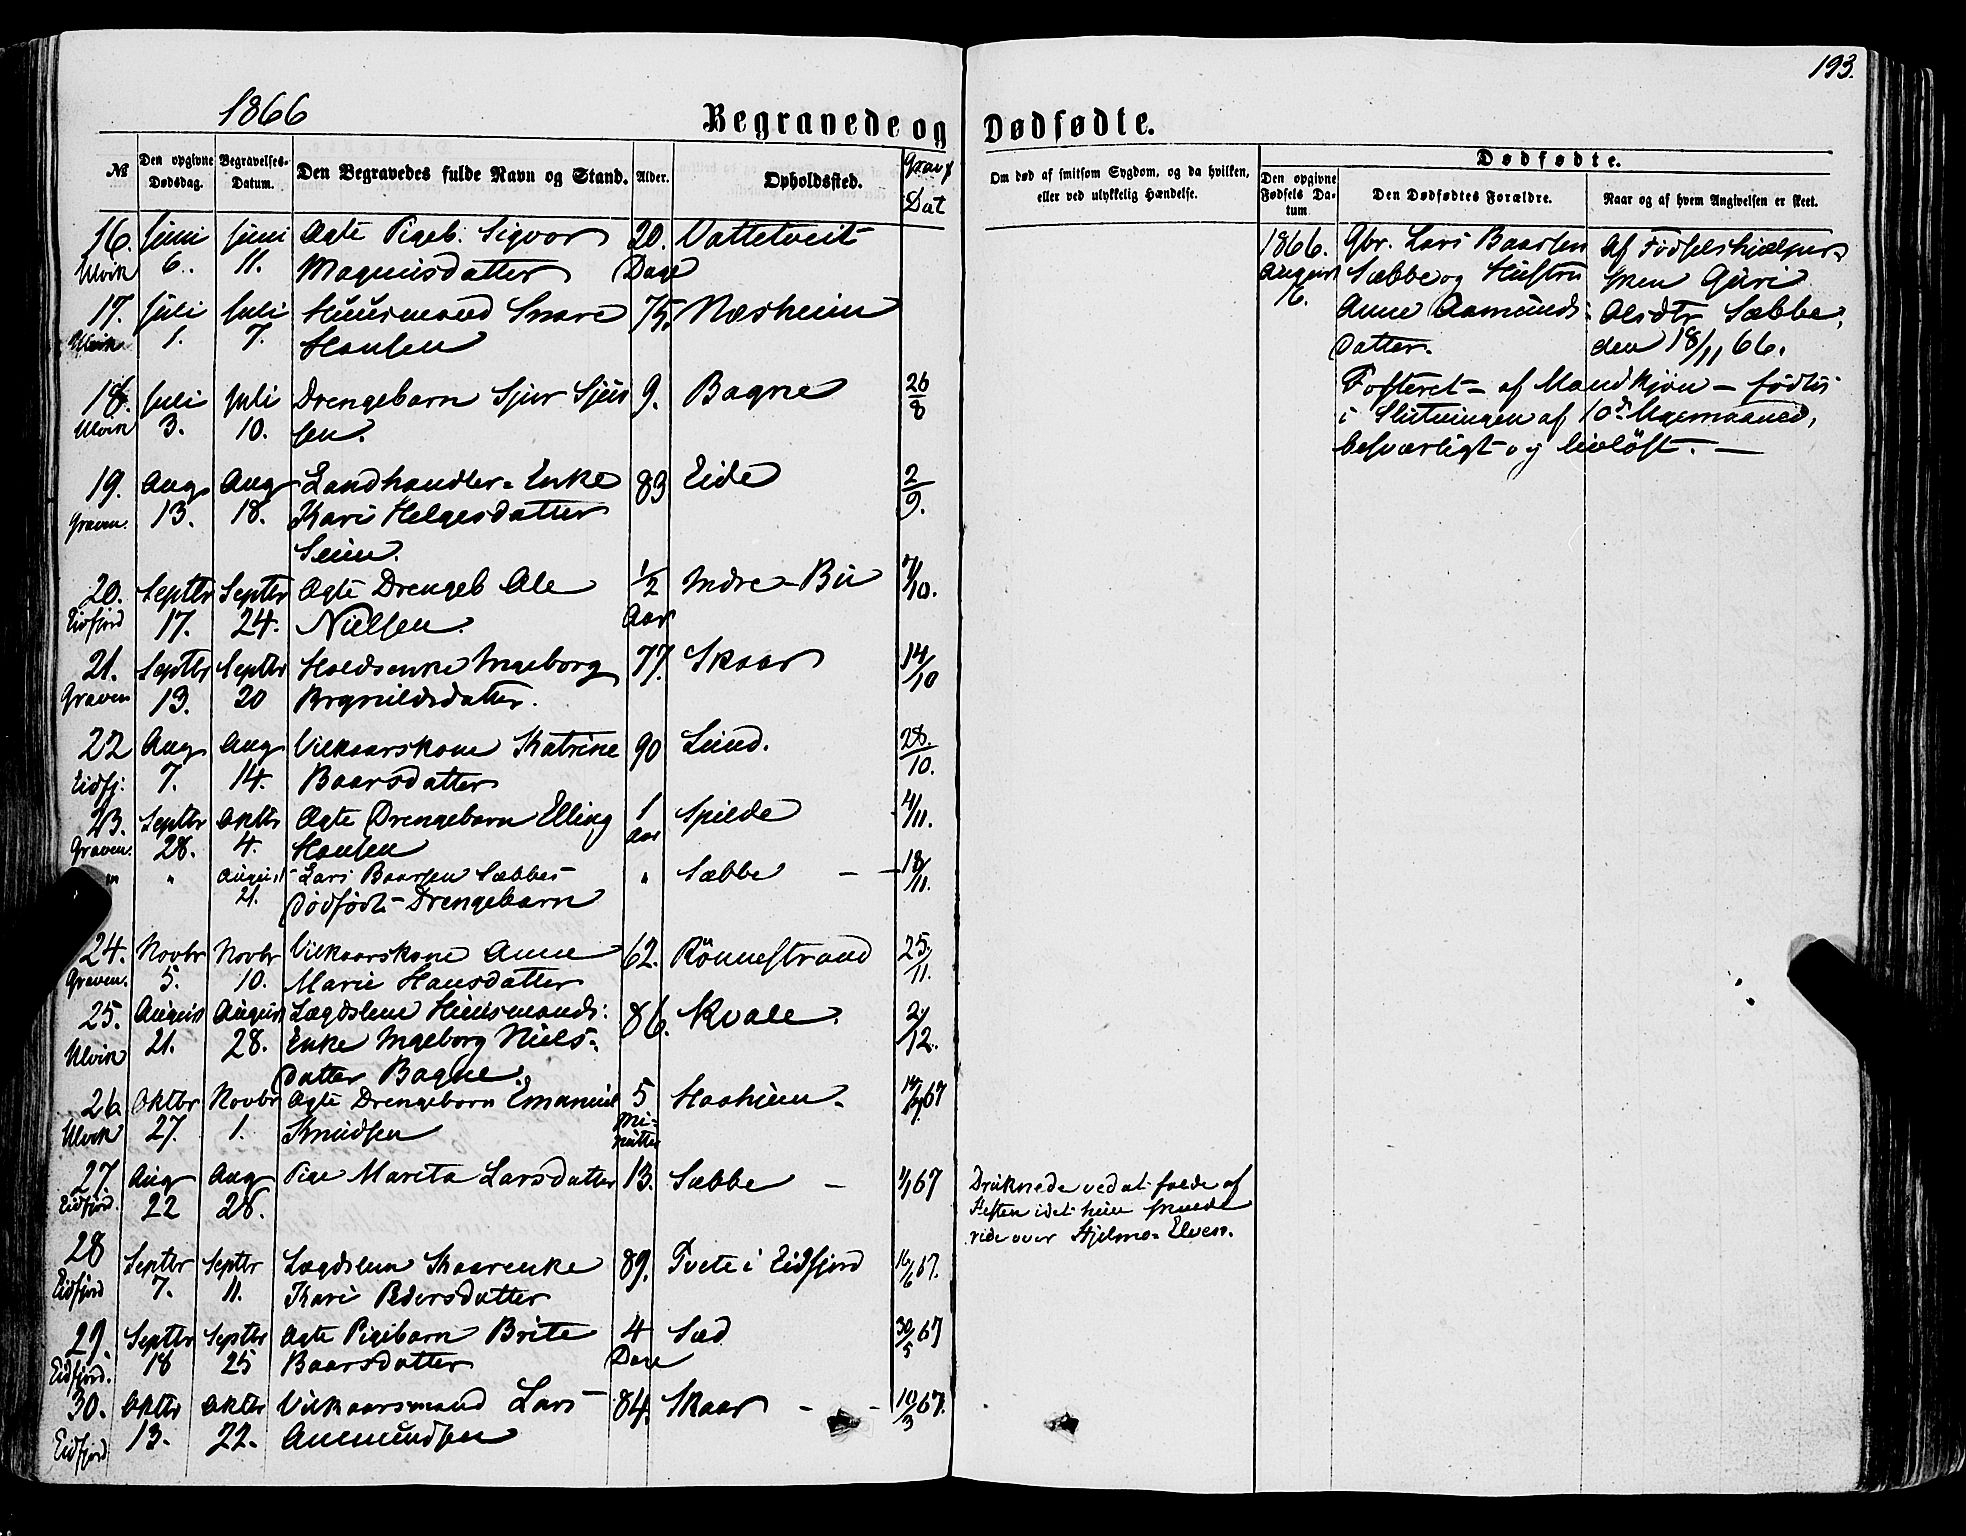 193.
1866
Begravede og Dødfødte.
№
Den opgivne Dødsdag.
Begravelses-Datum.
Den Begravedes fulde Navn og Stand.
Alder.
Opholdssted.
Dat
Om død af smitsom Sygdom, og da hvilken, eller ved ulykkelig Hændelse.
Dødfødte.
Den opgivne Fødsels Datum
Den Dødfødtes Forældre.
Naar og af hvem Angivelsen er skeet.
16. Juni Juni Ægte Pigeb. Sigvor 20. Vattetveit
Ulvik 6. 11. Magnusdatter Dage
17. Juli Juli Huusmand Snare 75. Næsheim
Ulvik 1. 7. Hansen
18. Juli Juli Drengebarn Sjur Sjur 9. Bagne 26/8
Ulvik 3. 10. sen.
19. Aug Aug Landhandler-Enke 83 Eide 2/9.
Graven. 13. 18. Kari Helgesdatter
Seim.
20. Septbr Septbr Ægte Drengeb Ole 1/2 Indre-Bu 7/10.
Eidfjord 17. 24. Nielsen. Aar
21. Septbr Septbr Ingeborg 77. Skaar 14/10
Graven 13. 20 Brynildsdatter.
22 Aug Aug Vilkaarskone Katrine 90 Lund. 28./10.
Eidfj: 7. 14. Baarsdatter
23. Septbr Oktbr Ægte Drengebarn Elling 1 Spilde 4/11.
Graven. 28. 4. Hansen Aar
" " August Lars Baarsen Sæbbes " Sæbbe — 18/11.
21. dødfødt-Drengebarn
24. Novbr Novbr Vilkaarskone Anne 62. Rönnestrand 25/11.
Graven. 5. 10. Marie Hansdatter
25. August August Lægdslem Huusmands: 86. Kvale. 2/12.
Ulvik 21. 28. Enke Ingeborg Niels-
datter Bagne.
26. Oktbr Novbr Ægte Drengebarn Emanuel 5 Haaheim. 67
Ulvik 27. 1. Knudsen Mi-
nutter
27. Aug Aug Pige Marita Larsdatter 13. Sæbbe — 67
Eidfjord. 22 28.
28 Septbr Septbr Lægdslem 89. Tveit i Eidfjord 16/6 67.
Eidfjord 7. 11. Kari Pedersdatter
29. Septbr Septbr Ægte Pigebarn Brite 4 Sæd 30/5 67
Eidfjord. 18 25 Baarsdatter Dage
30. Oktbr Oktbr Vilkaarsmand Lars 84. Skaar - - 10/3 67.
Eidfjord 13. 22. Anemundsen
Druknede ved at falde af
Hesten idet hun skulde
ride over Hjelmo-Elven.
1866.
August
16.
Gbr. Lars Baarsen
Sæbbe og Hustru
Anne Aamunds-
datter.
Af Fødselshjælper-
sken Guri
Olsdtr Sæbbe,
den 18/11 66.
Fosteret - af Mandkjøn - fødtes
i Slutningen af 10de Ugemaaned,
besværligt og livløst. —